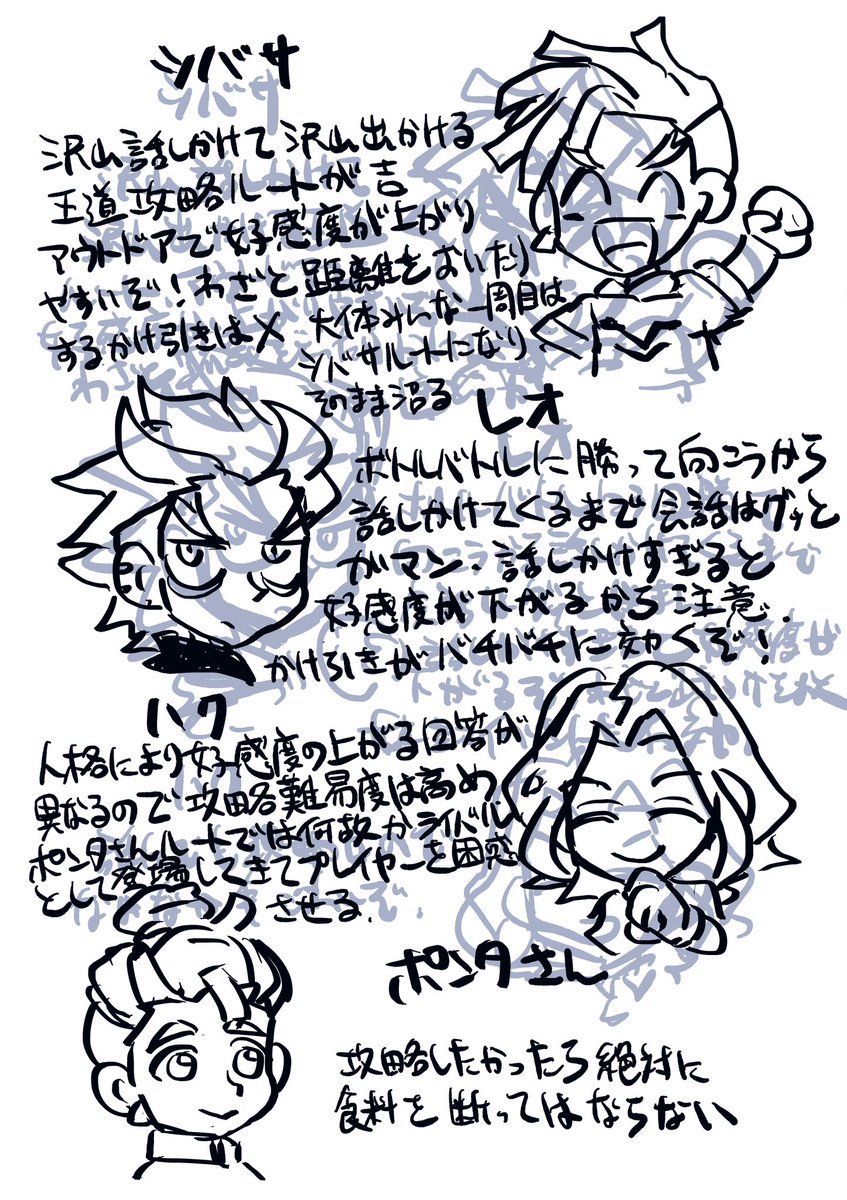 シバサ
沢山話しかけて沢山出かける
王道攻略ルートが吉
アウトドアで好感度が上がり
やすいぞ！わざと距離をおいたり
するかけ引きは✕ 大体みんな一周目は
シバサルートになり
そのまま沼る
レオ
ボトルバトルに勝って向こうから
話しかけてくるまで会話はグッと
ガマン.話しかけすぎると
好感度が下がるから注意.
かけ引きがバチバチに効くぞ！
ハク
人格により好感度の上がる回答が
異なるので攻略難易度は高め
ポンタさんルートでは何故かライバル
として登場してきてプレイヤーを困惑
させる.
ポンタさん
攻略したかったら絶対に
食料を断ってはならない